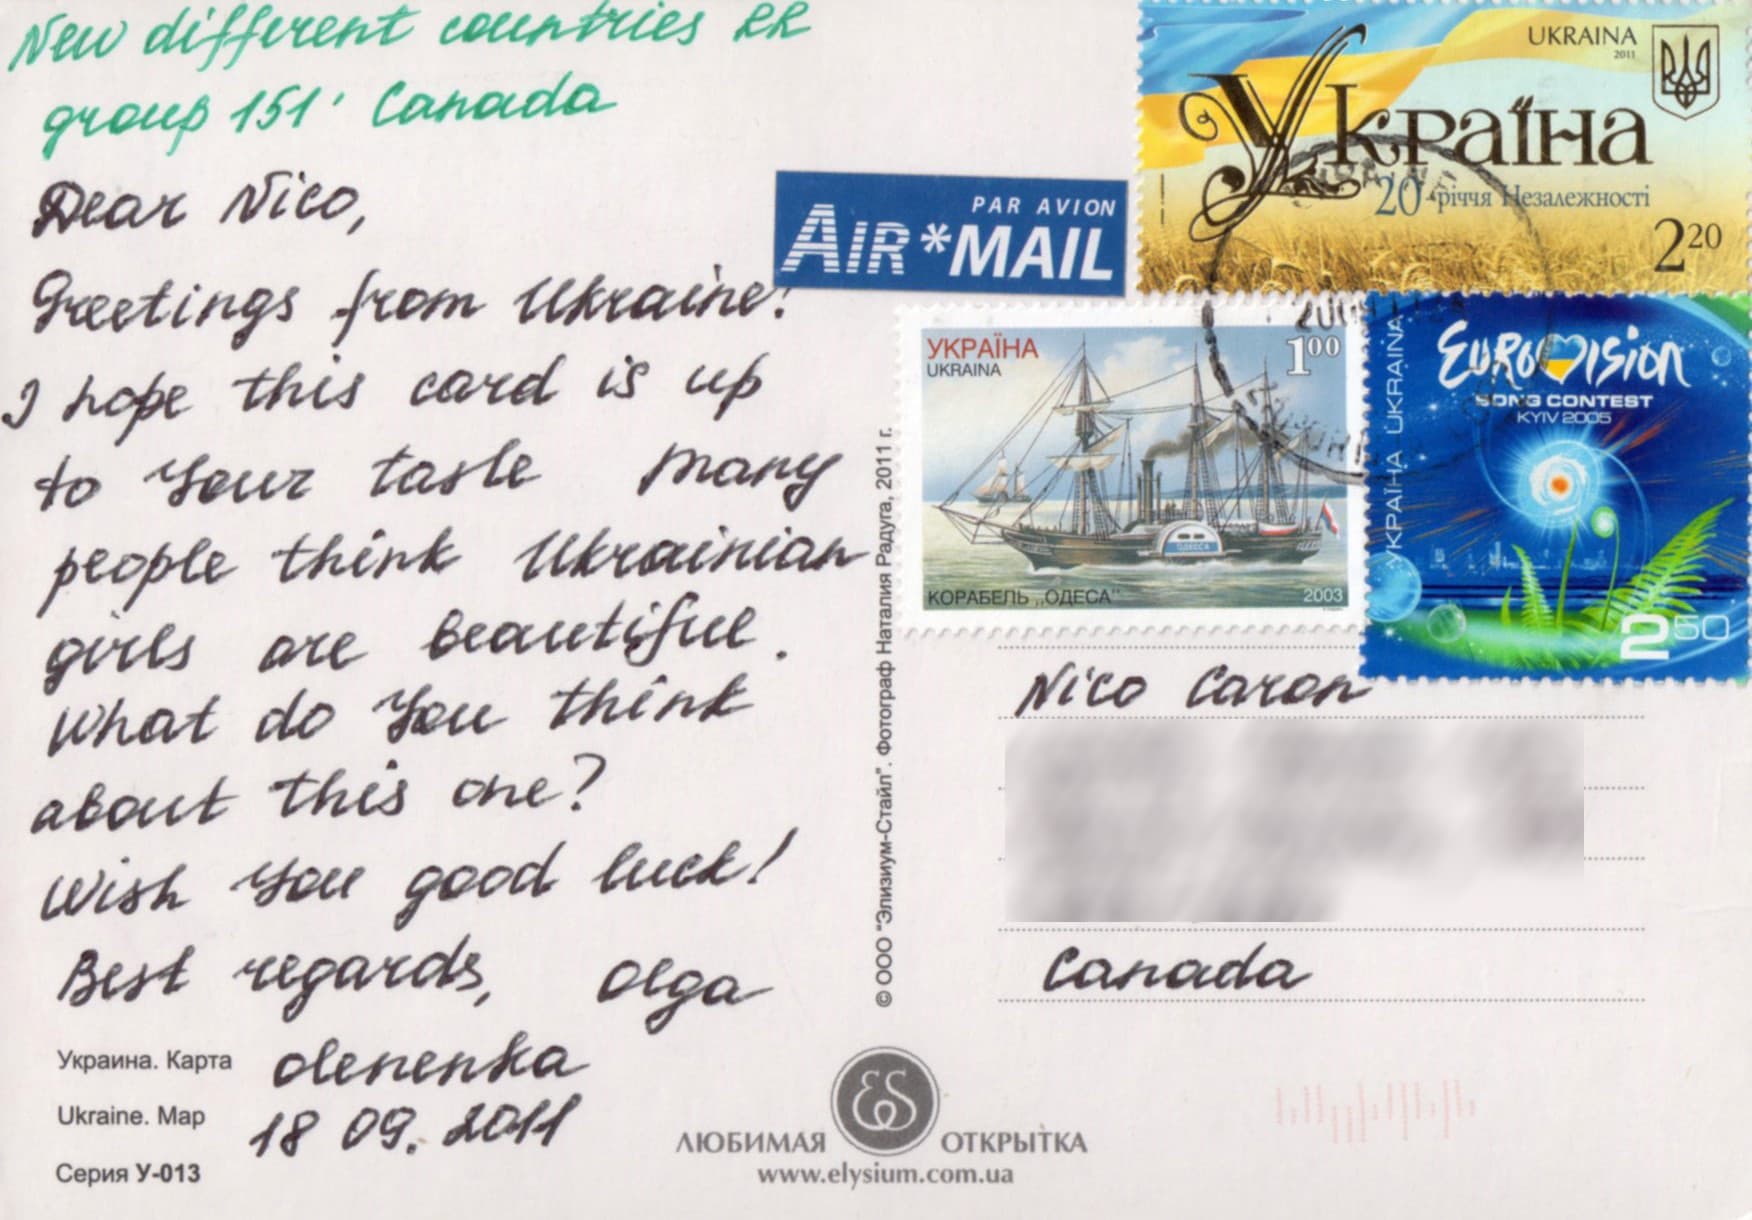 New different countries RR
group 151. Canada
Dear Nico,
Greetings from Ukraine!
I hope this card is up
to Your taste Many
people think Ukrainian
girls are beautiful.
What do You think
about this one?
Wish You good luck!
Best regards, Olga
olenenka
18 09. 2011
Украина. Карта
Ukraine. Map
Серия У-013
PAR AVION
AIR*MAIL
UKRAINA
2011
Україна
20-річчя Незалежності
2 20
УКРАЇНА
UKRAINA
1 00
КОРАБЕЛЬ „ОДЕСА“
2003
ОДЕСА
УКРАЇНА UKRAINA
EUROVISION
SONG CONTEST
KYIV 2005
2 50
© ООО "Элизиум-Стайл". Фотограф Наталия Радуга, 2011 г.
Nico Caron
Canada
ES
ЛЮБИМАЯ ОТКРЫТКА
www.elysium.com.ua